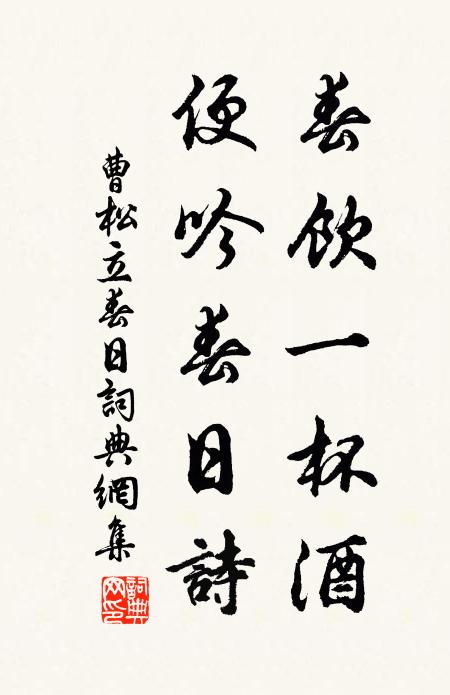 春飲一杯酒
便吟春日詩
曹松立春日詞典網集
詞典網印